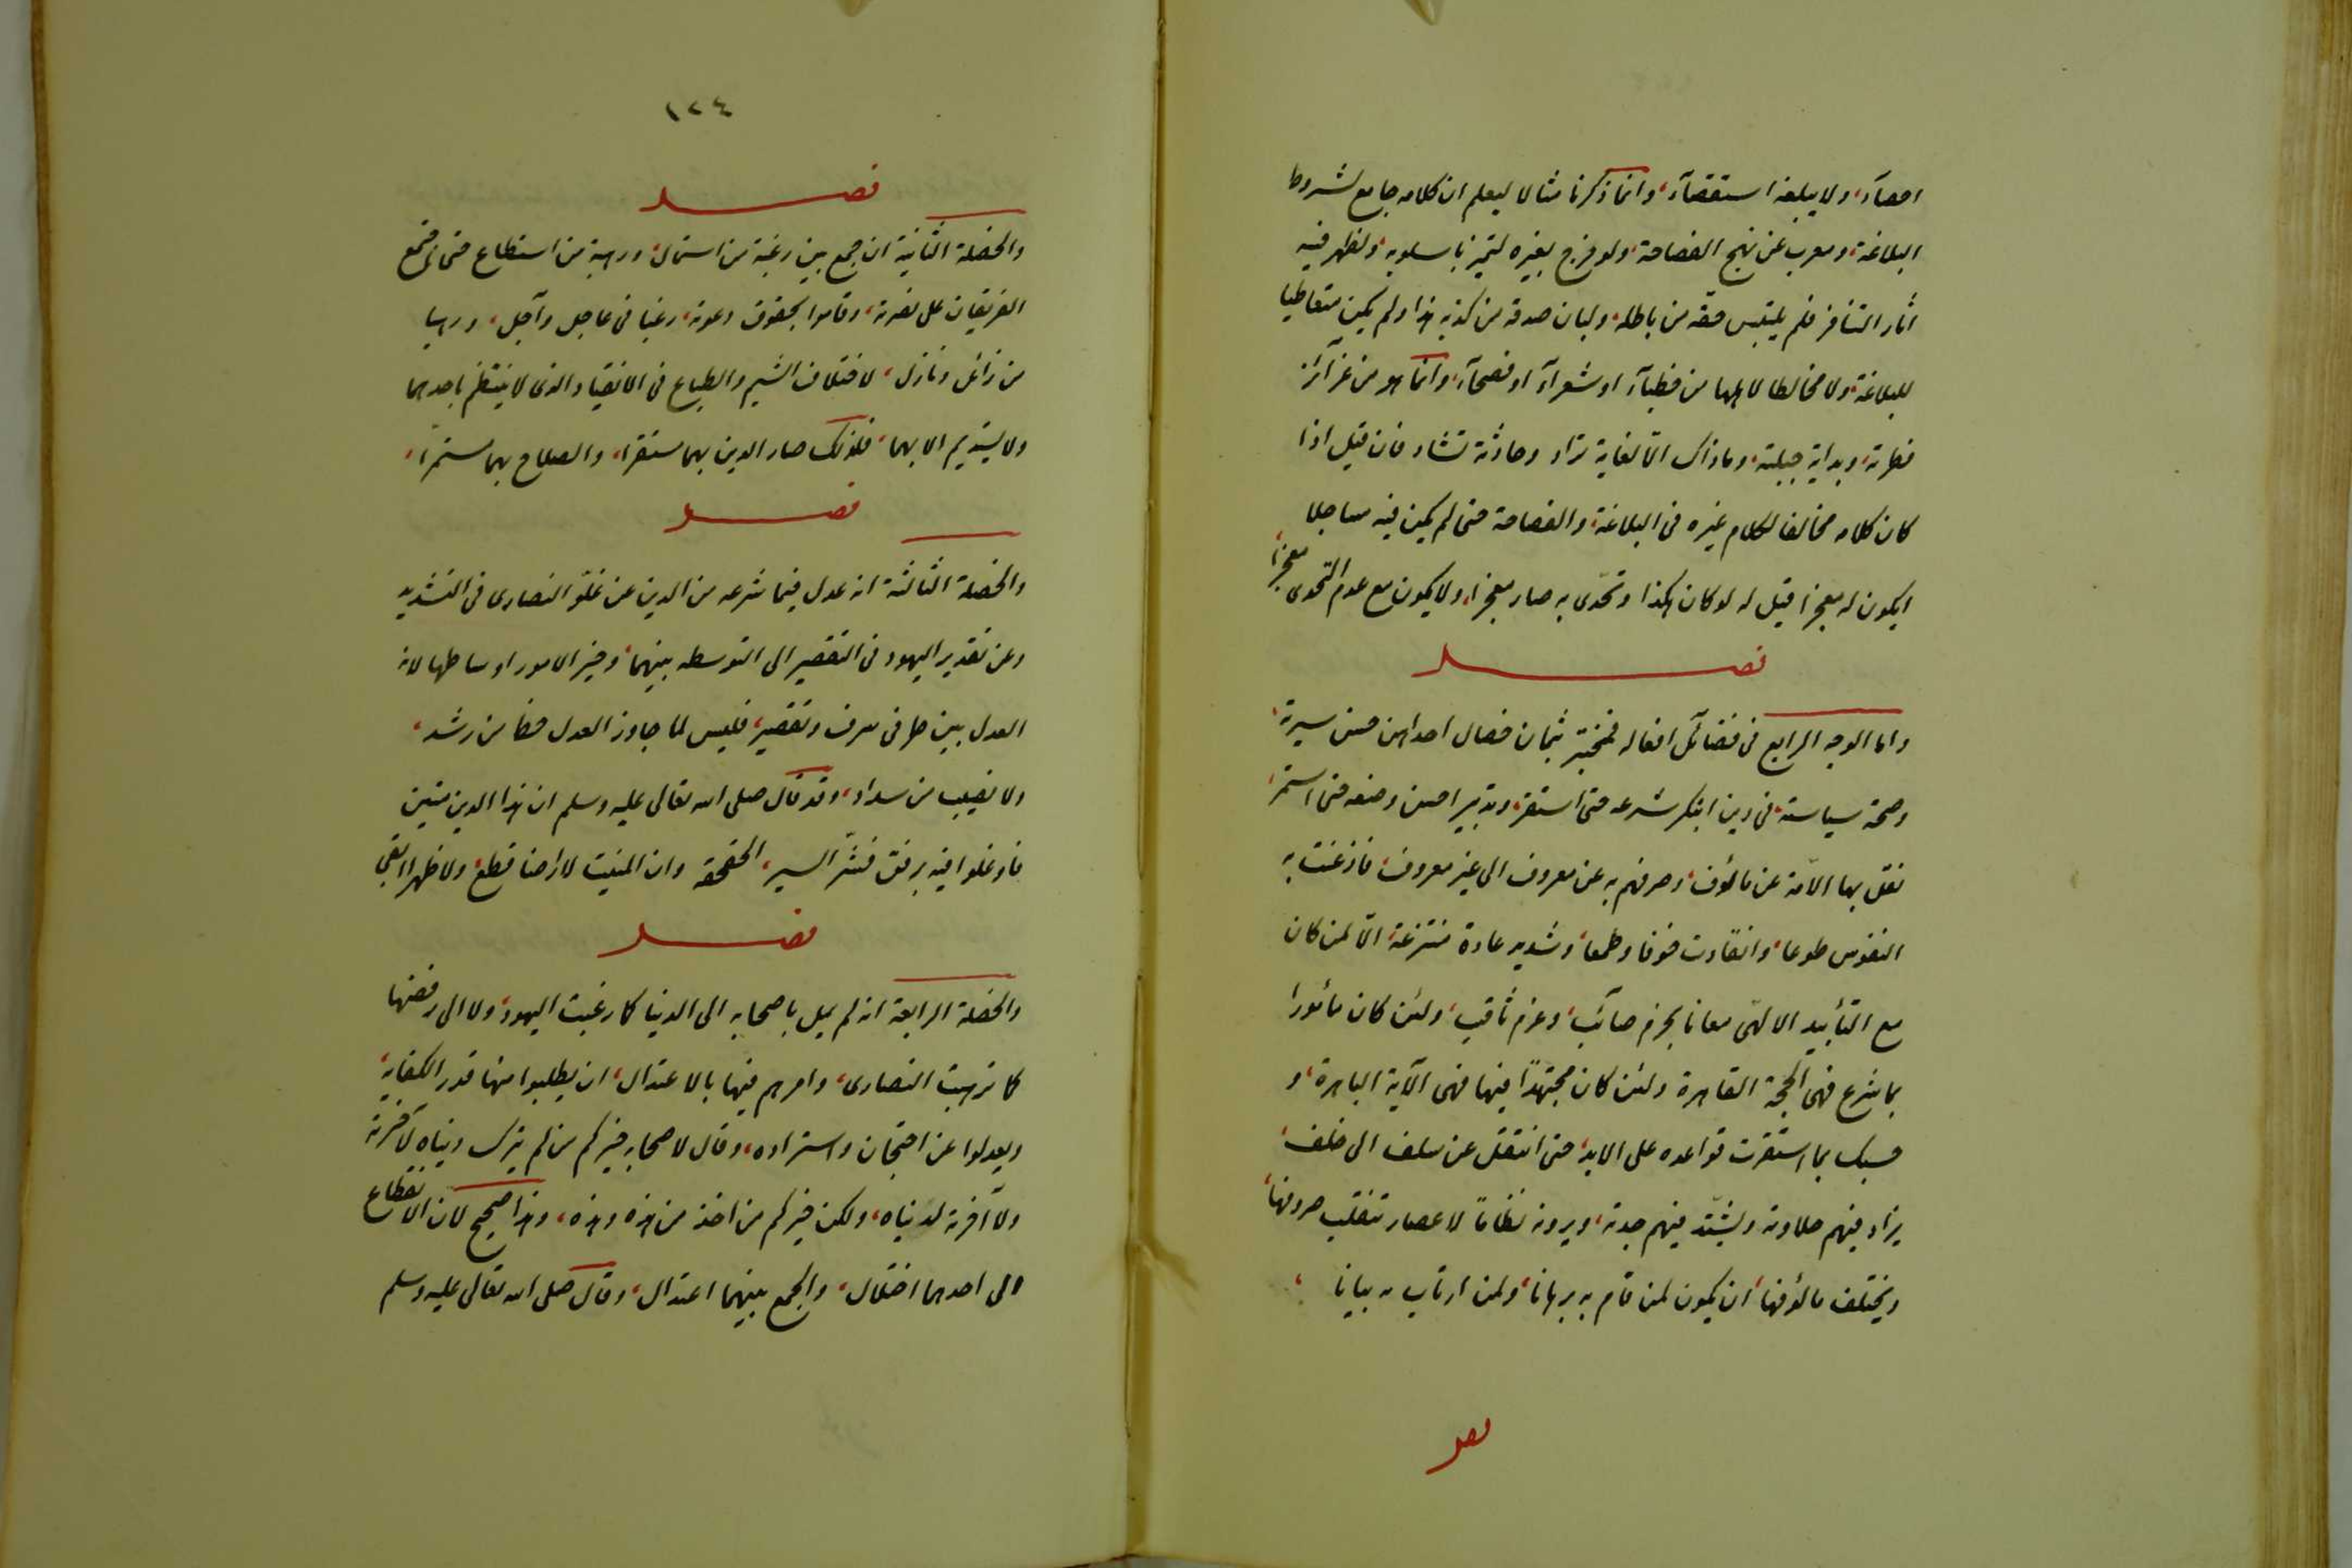 احصآء، ولا يبلغه استقصآء، وانما ذكرنا مثالا ليعلم ان كلامه جامع لشروط
البلاغة، ومعرب عن نهج الفصاحة، ولو مزج بغيره لتميز باسلوبه، ولظهر فيه
اثار التنافر فلم يلتبس حقه من باطله، ولبان صدقه من كذبه هذا ولم يكن متعاطيا
للبلاغة، ولا مخالطا لاهلها من خطبآء او شعرآء او فصحآء، وانما هو من غرآئز
فطرته، وبداية جبلته، وما ذاك الّا لغاية تراد وحادثة تشاد فان قيل اذا
كان كلامه مخالفا لكلام غيره فى البلاغة، والفصاحة حتى لم يكن فيه مساجلا
ايكون له معجزا قيل له لو كان هكذا وتحّدى به صار معجزا، ولا يكون مع عدم التحدى معجزا،
فصل
واما الوجه الرابع فى فضآئل افعاله فمختبر بثمان خصال احداهن حسن سيرته،
وصحة سياسته، فى دين ابتكر شرعه حتى استقر، وتدبير احسن وضعه حتى استمر،
نقل بها الاّمة عن مالُوف، وصرفهم به عن معروف الى غير معروف، فاذعنت به
النفوس طوعا، وانقادت خوفا وطمعا، وشديد عادة منتزعة، الّا لمن كان
مع التأييد الالهّى معانا بحزم صآئب، وعزم ثاقب، ولئن كان مأمورا
بما شرع فهى الحجة القاهرة ولئن كان مجتهدًا فيها فهى الآية الباهرة، و
حسبك بما استقرت قواعده على الابد، حتى انتقل عن سلف الى خلف،
يزاد فيهم حلاوته ويشتّد فيهم جدته، ويرونه نظامًا لاعصار تتقلب صروفها،
ويختلف مالُوفها، ان يكون لمن قام به برهانا، ولمن ارتاب به بيانا،
فصل
١٢٤
فصل
والخصلة الثّانية ان جمع بين رغبة من استمال، ورهبة من استطاع حتى اجتمع
الفريقان على نصرته، وقاموا بحقوق دعوته، رغبا فى عاجل وآجل، ورهبا
من زائل ونازل، لاختلاف الشيم والطباع فى الانقياد الذى لا ينتظم باحدهما
ولا يستديم الا بهما، فلذلك صار الدين بهما مستقرا، والصلاح بهما مستمرًا،
فصل
والخصلة الثّالثّة انه عدل فيما شرعه من الدين عن غلّو النصارى فى التشديد
وعن تقدير اليهود فى التقصير الى التوسط بينهما، وخير الامور اوساطها لانه
العدل بين طرفى سرف وتقصير، فليس لما جاوز العدل حظا من رشد،
ولا نصيب من سداد، وقد قال صلى الله تعالى عليه وسلم ان هذا الدين متين
فاوغلوا فيه برفق فشّر السير، الحقحقة وان المنبت لا ارضا قطع، ولا ظهرا ابقى
فصل
والخصلة الرابعة انه لم يمل باصحابه الى الدنيا كما رغبت اليهود، ولا الى رفضها
كما ترهبت النصارى، وامرهم فيها بالاعتدال، ان يطلبوا منها قدر الكفاية،
ويعدلوا عن احتجان واستزاده، وقال لاصحابه خيركم من لم يترك دنياه لآخرته
ولا آخرته لدنياه، ولكن خيركم من اخذ من هذه وهذه، وهذا صحيح لان الانقطاع
الى احدهما اختلال، والجمع بينهما اعتدال، وقال صلى الله تعالى عليه وسلم